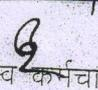 व कर्मचा